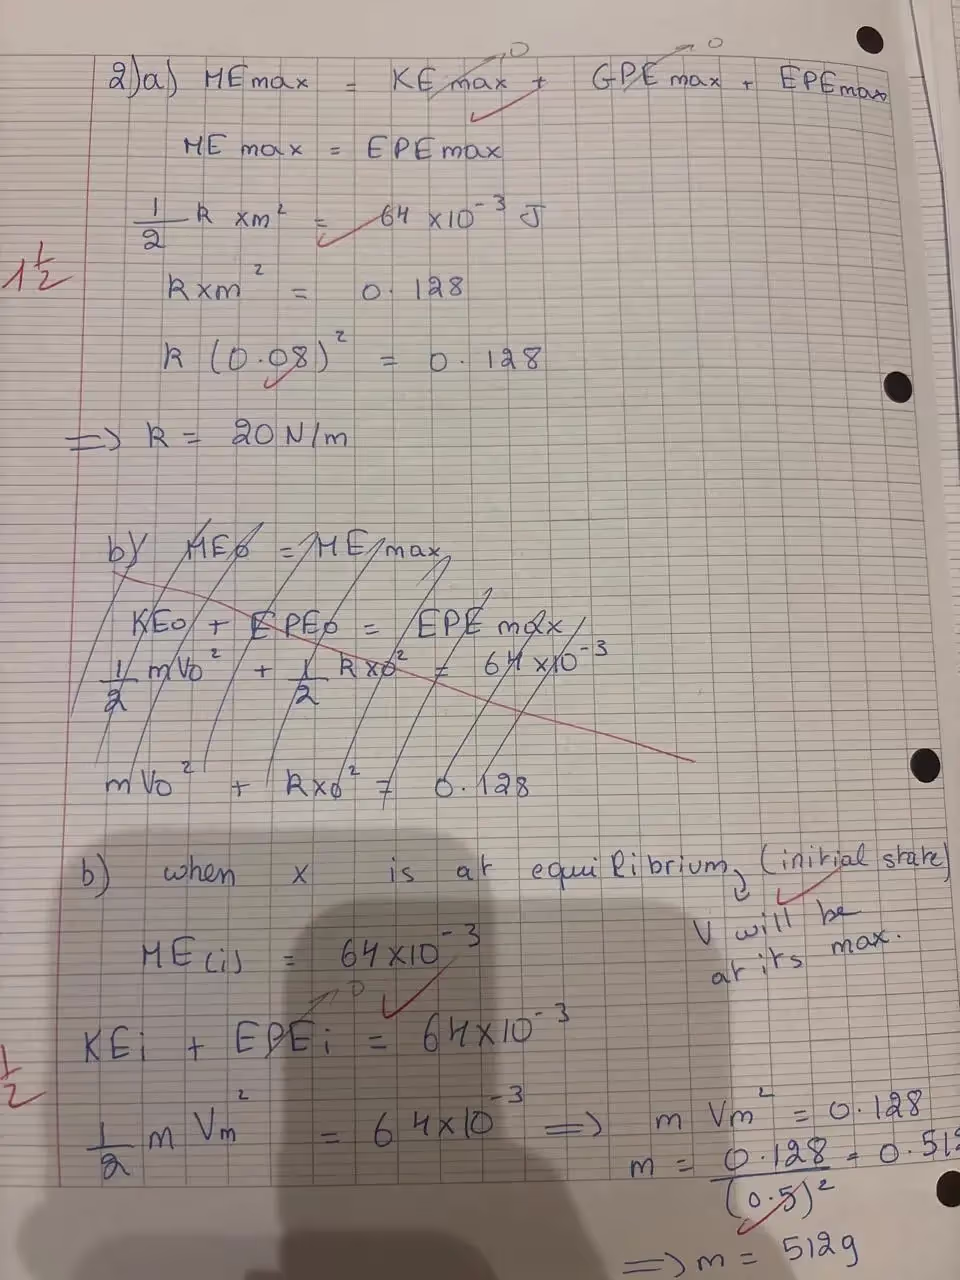 2)a) MEmax = KEmax + GPEmax + EPEmax
0 0
ME max = EPEmax
1/2 k xm² = 64 x10⁻³ J
1 1/2
kxm² = 0.128
k (0.08)² = 0.128
=> k = 20N/m
b) ME0 = ME max
KE0 + EPE0 = EPE max
1/2 mV0² + 1/2 kx0² = 64x10⁻³
mV0² + kx0² = 0.128
b) when x is at equilibrium, (initial state)
↪ V will be
at its max.
ME(i) = 64x10⁻³
0
KEi + EPEi = 64x10⁻³
1/2
1/2 m Vm² = 64x10⁻³ => m Vm² = 0.128
m = 0.128/(0.5)² = 0.512
=> m = 512g